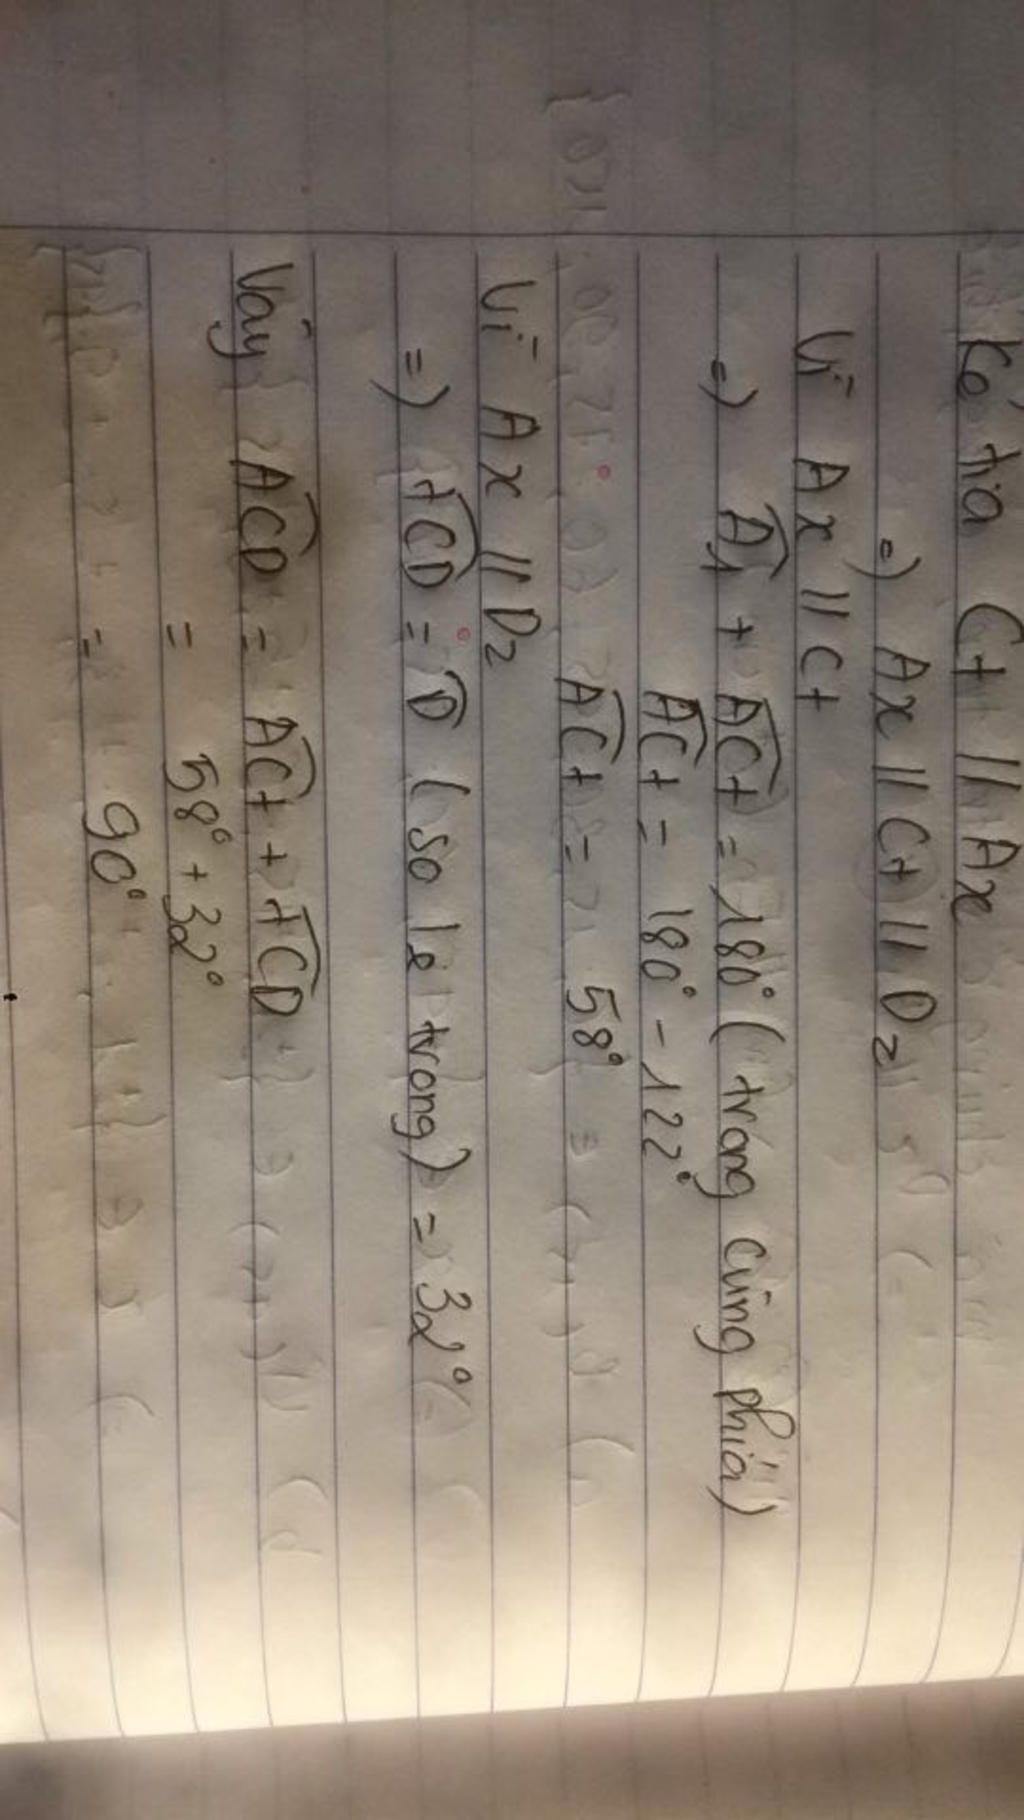 Kẻ tia Ct // Ax
=) Ax // Ct // Dz
Vì Ax // Ct
=) Â1 + ACt = 180° ( trong cùng phía)
ACt = 180° - 122°
ACt = 58°
Vì Ax // Dz
=) tCD = D (so le trong) = 32°
Vậy ACD = ACt + tCD
= 58° + 32°
= 90°